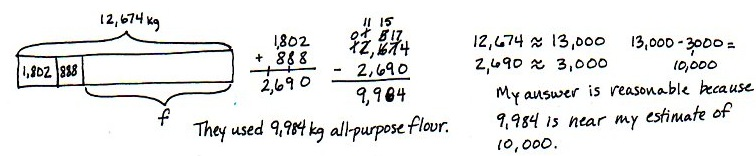 12,674 kg
1,802 888
f
1,802
+ 888
2,690
11 15
0 1 8 17
12,674
- 2,690
9,984
They used 9,984 kg all-purpose flour.
12,674 ≈ 13,000 13,000 - 3000 =
2,690 ≈ 3,000 10,000
My answer is reasonable because
9,984 is near my estimate of
10,000.